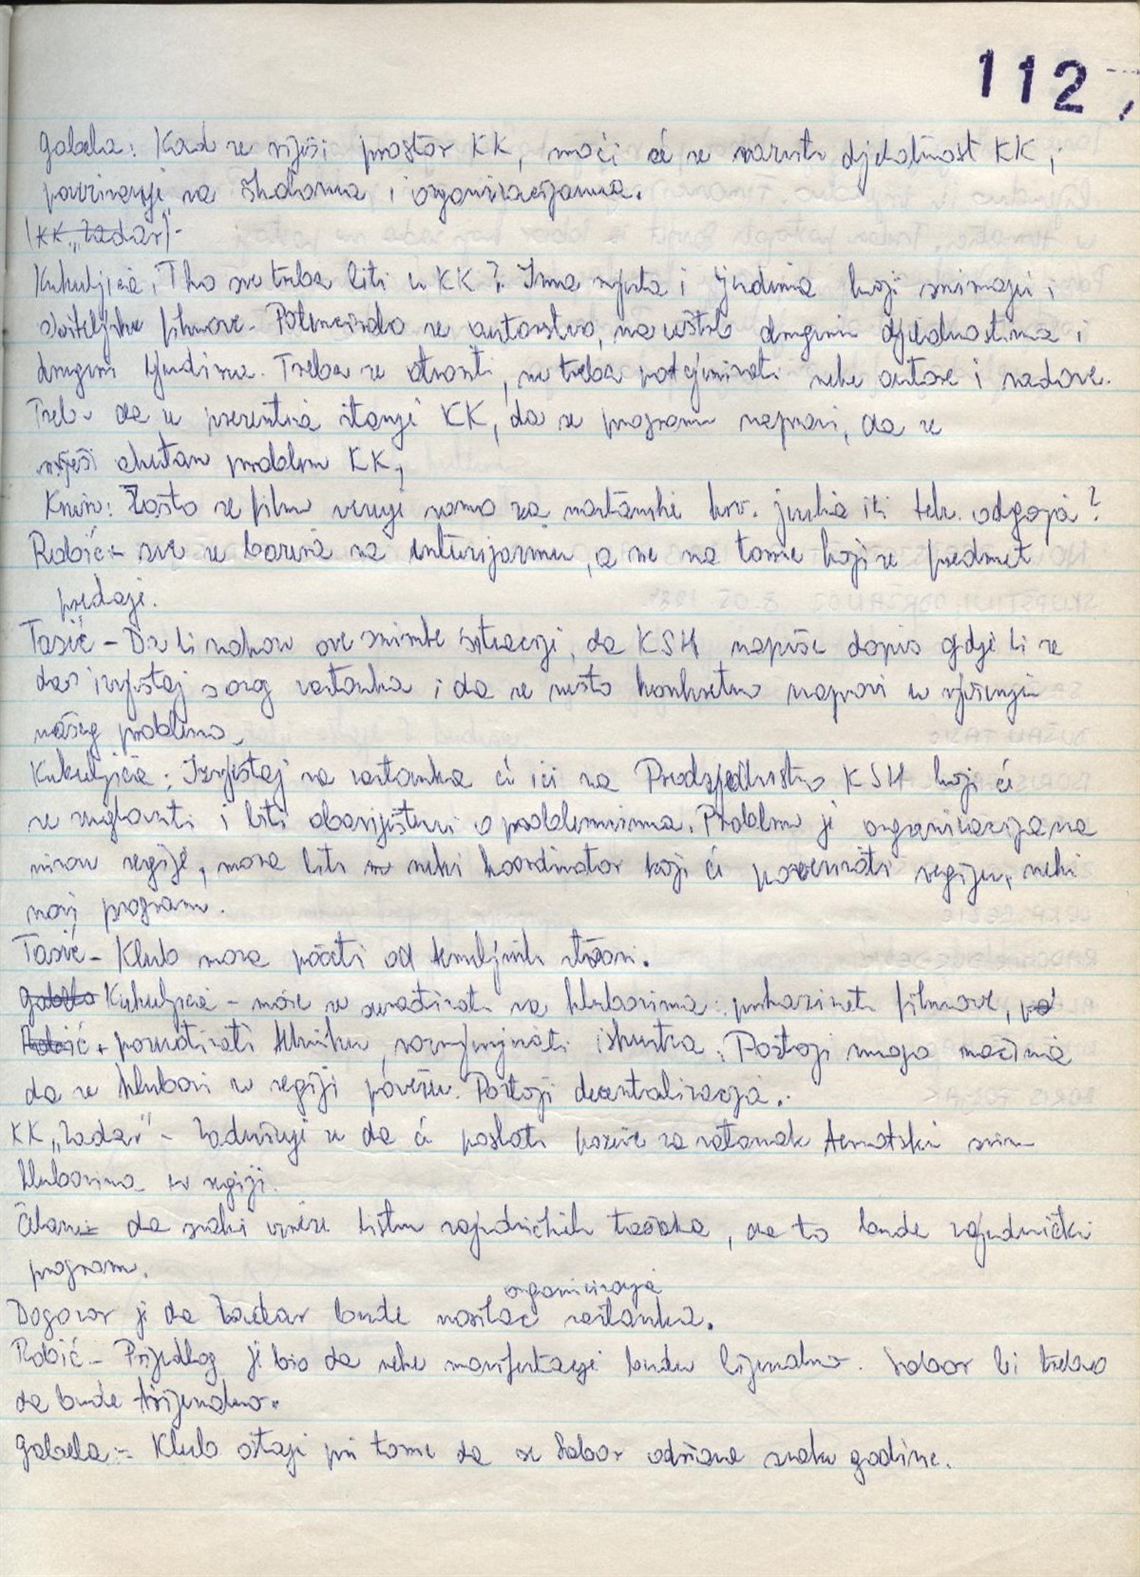 112
Gabela: Kad se riješi prostor KK, moći će se razviti djelatnost KK i
povezivanje na školama i organizacijama.
(KK „Zadar")-
Kukuljica: Tko sve treba biti u KK? Ima mjesta i ljudima koji snimaju i
obiteljske filmove. Potencira se autorstvo, na uštrb drugim djelatnostima i
drugim ljudima. Treba se otvoriti, ne treba potcjenjivati neke autore i radove.
Treba da se prezentira stanje KK, da se program napravi, da se
riješi akutan problem KK,
Knin: Zašto se film vezuje samo za nastavnike hrv. jezika ili teh. odgoja?
Robić - sve se bazira na entuzijazmu, a ne na tome koji se predmet
predaje.
Tasić - Da li nakon ove snimke situacije, da KSH napiše dopis gdje bi se
dao izvještaj s ovog sastanka i da se nešto konkretno napravi u rješenju
našeg problema.
Kukuljica: Izvještaj sa sastanka će ići na Predsjedništvo KSH koji će
se reagovati i biti obaviješteni o problemima. Problem je organizacija na
nivou regije, mora biti neki koordinator koji će povezivati regiju, neki
novi program.
Tasić - Klub mora početi od temeljnih stvari.
Gabela Kukuljica - može se surađivati sa klubovima: prikazivati filmove,
Robić. posuđivati tehniku, razmjenjivati iskustva. Postoji mnogo načina
da se klubovi u regiji povežu. Postoji decentralizacija.
KK „Zadar" - Zadužuje se da će poslati pozive za sastanak tematski svim
klubovima u regiji.
da svaki iznese listu zajedničkih točaka, da to bude zajednički
program.
organiziranja
Dogovor je da Zadar bude nosilac sastanka.
Robić - Prijedlog je bio da neke manifestacije budu bijenalno. Sabor bi trebao
da bude trijenalno.
Gabela - Klub ostaje pri tome da se Sabor održava svake godine.